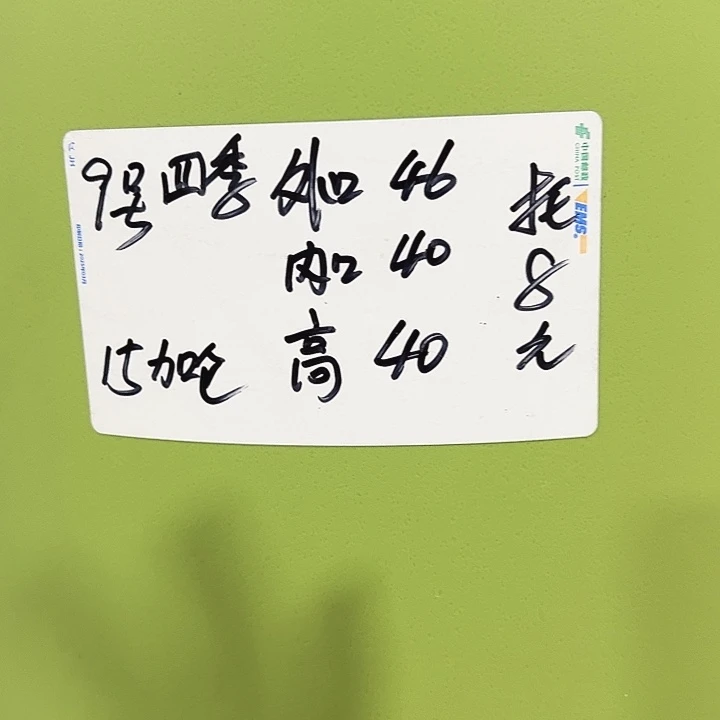 9号四季 外口 46
内口 40
15加仓 高 40
托
8
元
中国邮政
CHINA POST
EMS